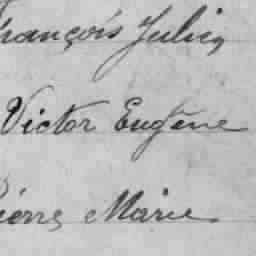 François Julien
Victor Eugène
Pierre Marie